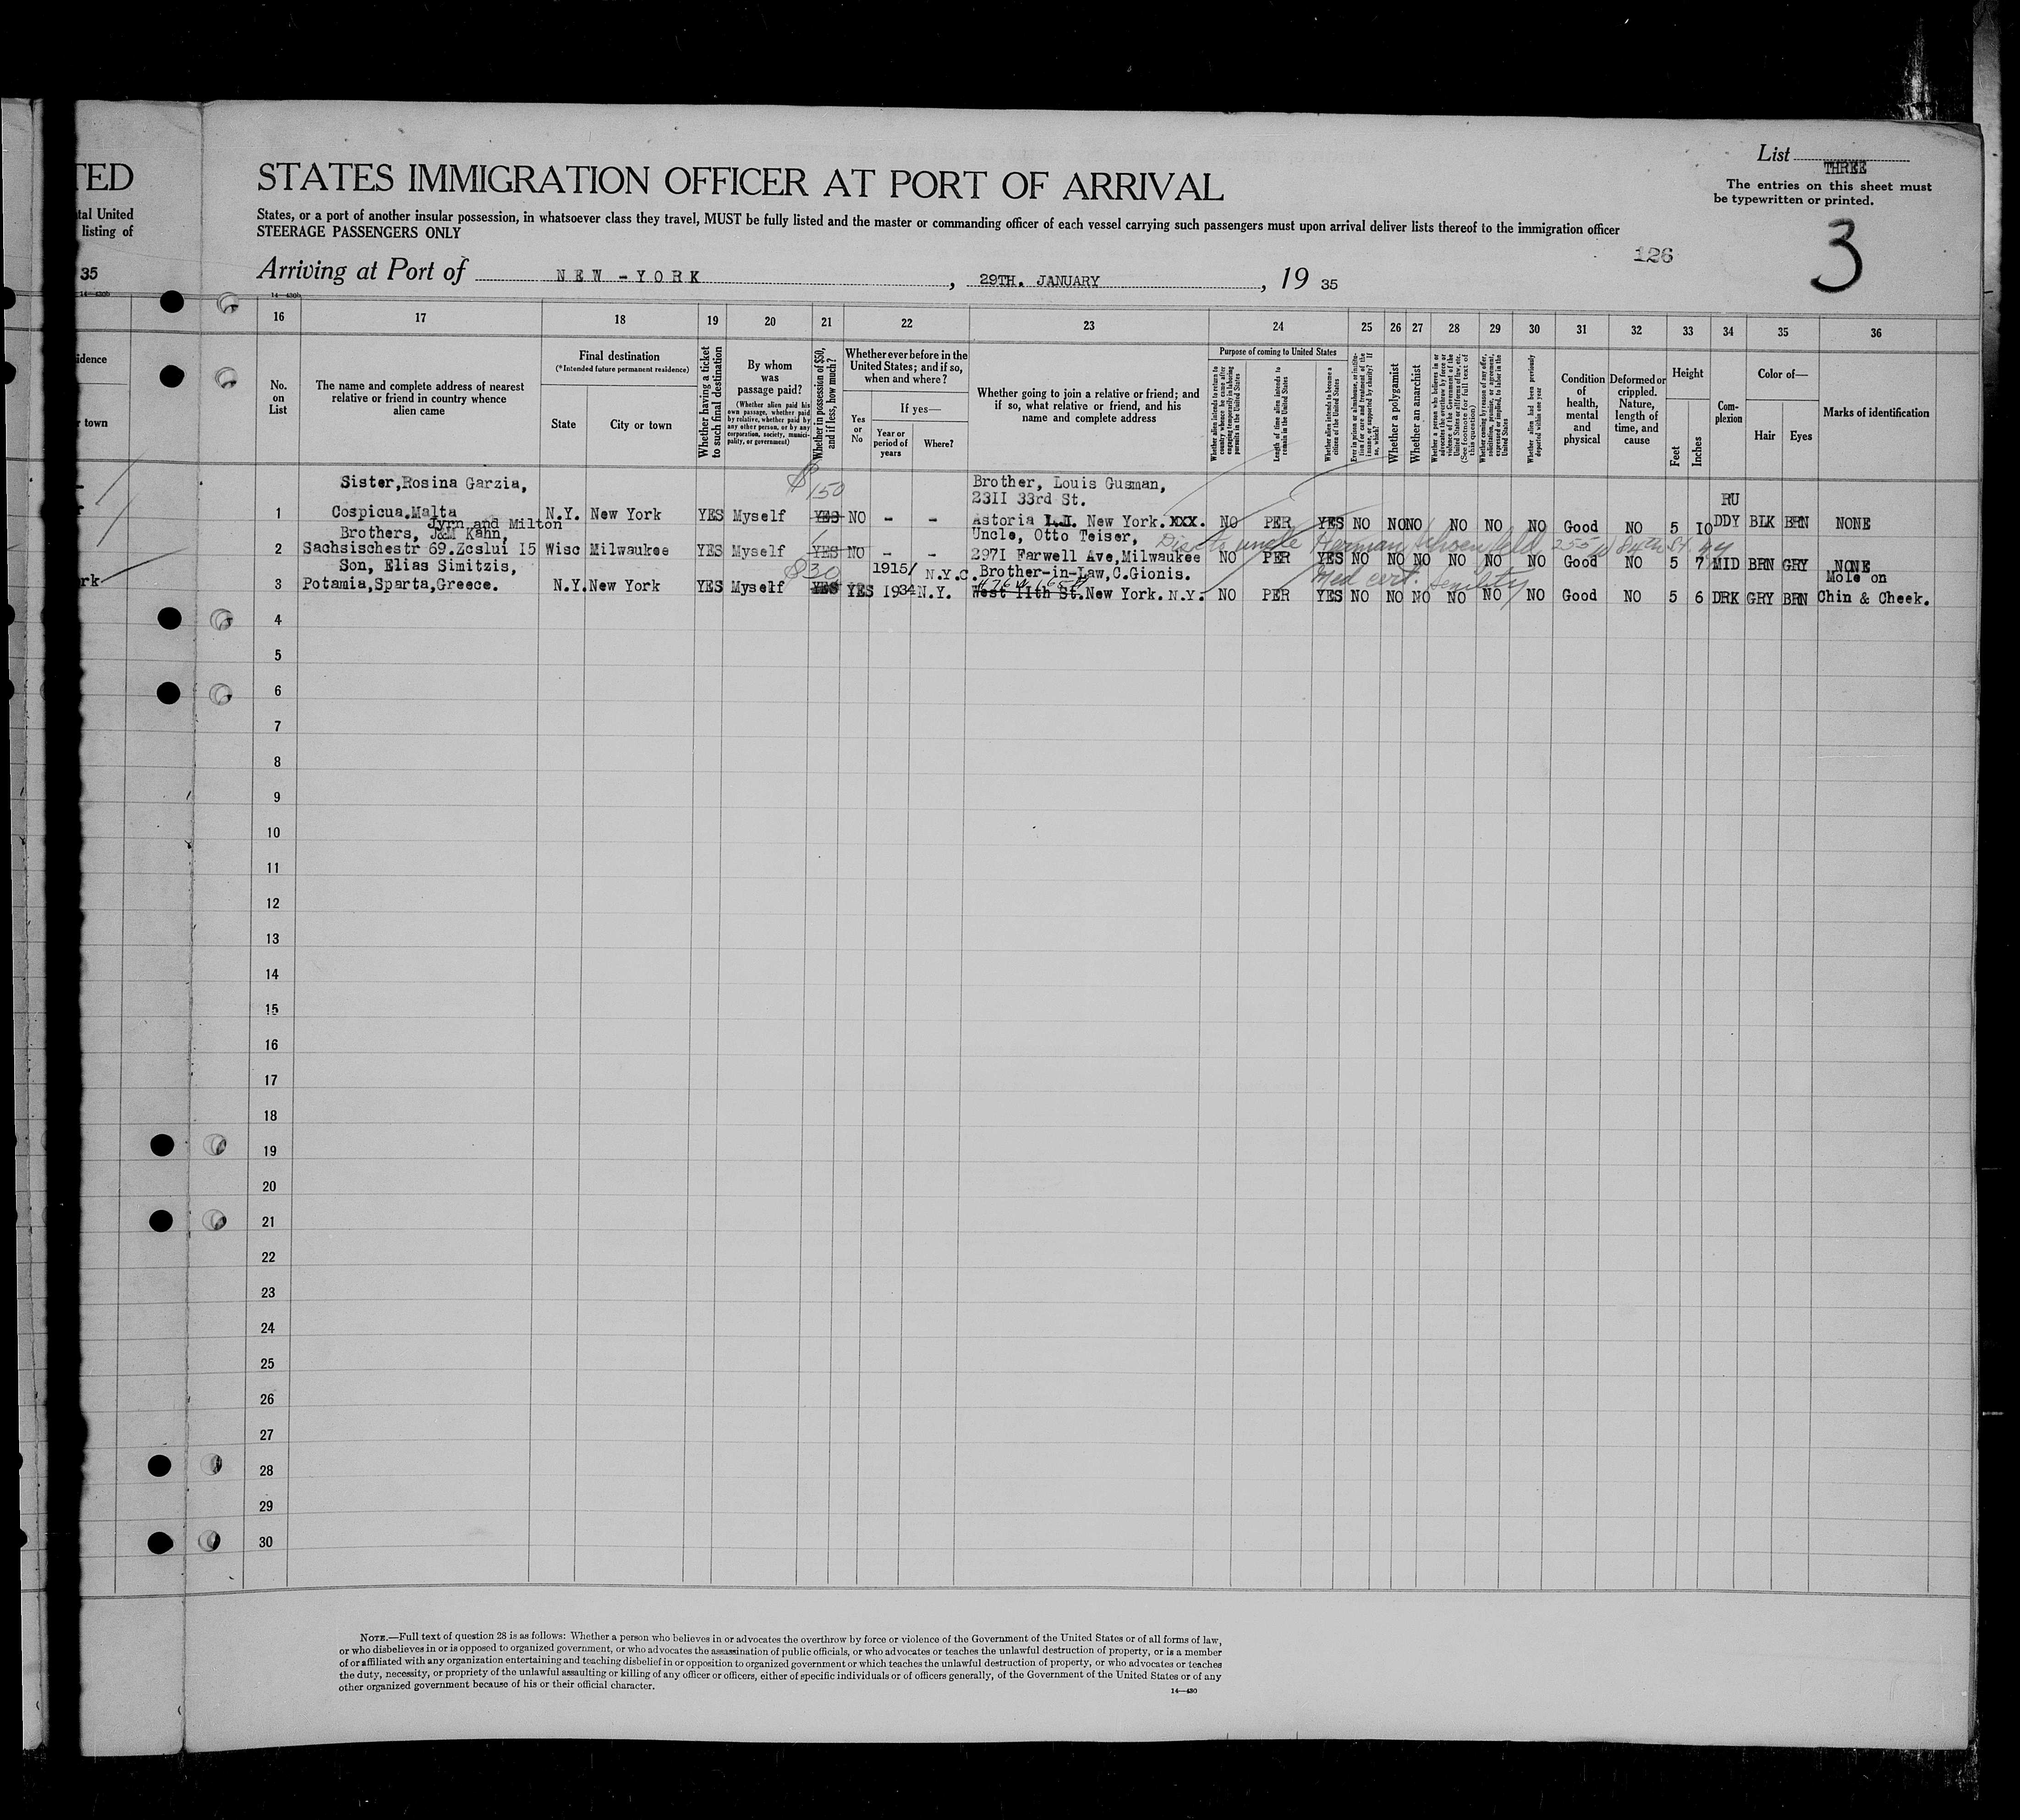 TED
tal United
listing of
35
14—430b
idence
r town
rk
STATES IMMIGRATION OFFICER AT PORT OF ARRIVAL
List THREE
The entries on this sheet must
be typewritten or printed.
3
126
States, or a port of another insular possession, in whatsoever class they travel, MUST be fully listed and the master or commanding officer of each vessel carrying such passengers must upon arrival deliver lists thereof to the immigration officer
STEERAGE PASSENGERS ONLY
Arriving at Port of NEW-YORK, 29TH. JANUARY, 19 35
14—430b
16 17 18 19 20 21 22 23 24 25 26 27 28 29 30 31 32 33 34 35 36
No.
on
List
The name and complete address of nearest
relative or friend in country whence
alien came
Final destination
(*Intended future permanent residence)
State
City or town
Whether having a ticket
to such final destination
By whom
was
passage paid?
(Whether alien paid his
own passage, whether paid
by relative, whether paid by
any other person, or by any
corporation, society, munici-
pality, or government)
Whether in possession of $50,
and if less, how much?
Whether ever before in the
United States; and if so,
when and where?
Yes
or
No
If yes—
Year or
period of
years
Where?
Whether going to join a relative or friend; and
if so, what relative or friend, and his
name and complete address
Purpose of coming to United States
Whether alien intends to return to
country whence he came after
engaging temporarily in laboring
pursuits in the United States
Length of time alien intends to
remain in the United States
Whether alien intends to become a
citizen of the United States
Ever in prison or almshouse, or institu-
tion for care and treatment of the
insane, or supported by charity? If
so, which?
Whether a polygamist
Whether an anarchist
Whether a person who believes in or
advocates the overthrow by force or
violence of the Government of the
United States or all forms of law, etc.
(See footnote for full text of
this question)
Whether coming by reason of any offer,
solicitation, promise, or agreement,
expressed or implied, to labor in the
United States
Whether alien had been previously
deported within one year
Condition
of
health,
mental
and
physical
Deformed or
crippled.
Nature,
length of
time, and
cause
Height
Feet
Inches
Com-
plexion
Color of—
Hair
Eyes
Marks of identification
Sister,Rosina Garzia, $150 Brother, Louis Gusman,
2311 33rd St. RU
1 Cospicua.Malta N.Y. New York YES Myself YES NO - - Astoria L.I. New York. XXX. NO PER YES NO NO NO NO NO NO Good NO 5 10 DDY BLK BRN NONE
Jyrn and Milton
Brothers, J&M Kahn, Uncle, Otto Teiser, Disc to uncle Herman 255 W 84th St. NY
2 Sachsischestr 69.Zcslui 15 Wisc Milwaukee YES Myself YES NO - - 2971 Farwell Ave,Milwaukee NO PER YES NO NO NO NO NO NO Good NO 5 7 MID BRN GRY NONE
Son, Elias Simitzis, $30 1915/ N.Y.C. Brother-in-Law,C.Gionis. Med cert. senility Mole on
3 Potamia,Sparta,Greece. N.Y. New York YES Myself YES YES 1934 N.Y. West 11th St.New York. N.Y. NO PER YES NO NO NO NO NO NO Good NO 5 6 DRK GRY BRN Chin & Cheek.
4
5
6
7
8
9
10
11
12
13
14
15
16
17
18
19
20
21
22
23
24
25
26
27
28
29
30
NOTE.—Full text of question 28 is as follows: Whether a person who believes in or advocates the overthrow by force or violence of the Government of the United States or of all forms of law,
or who disbelieves in or is opposed to organized government, or who advocates the assassination of public officials, or who advocates or teaches the unlawful destruction of property, or is a member
of or affiliated with any organization entertaining and teaching disbelief in or opposition to organized government or which teaches the unlawful destruction of property, or who advocates or teaches
the duty, necessity, or propriety of the unlawful assaulting or killing of any officer or officers, either of specific individuals or of officers generally, of the Government of the United States or of any
other organized government because of his or their official character.
14—430